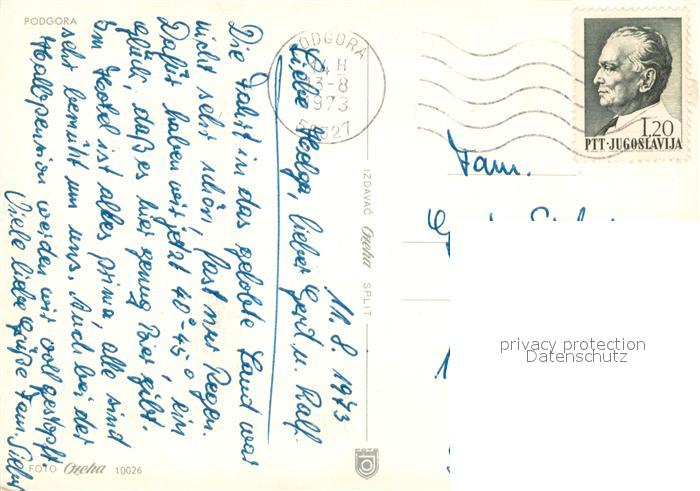 PODGORA
11.8.1973
Liebe Helga, lieber Gerd u. Ralf.
Die Fahrt in das gelobte Land war
nicht sehr schön, fast nur Regen.
Dafür haben wir jetzt 40°-45°, ein
Glück, daß es hier genug Bier gibt.
Im Hotel ist alles prima, alle sind
sehr bemüht um uns. Auch bei der
Halbpension werden wir vollgestopft.
Viele liebe Grüße Fam.
FOTO Ozeha 10026
IZDAVAČ Ozeha SPLIT
PODGORA
13-8
1973
58327
1,20
PTT·JUGOSLAVIJA
Fam.
privacy protection
Datenschutz